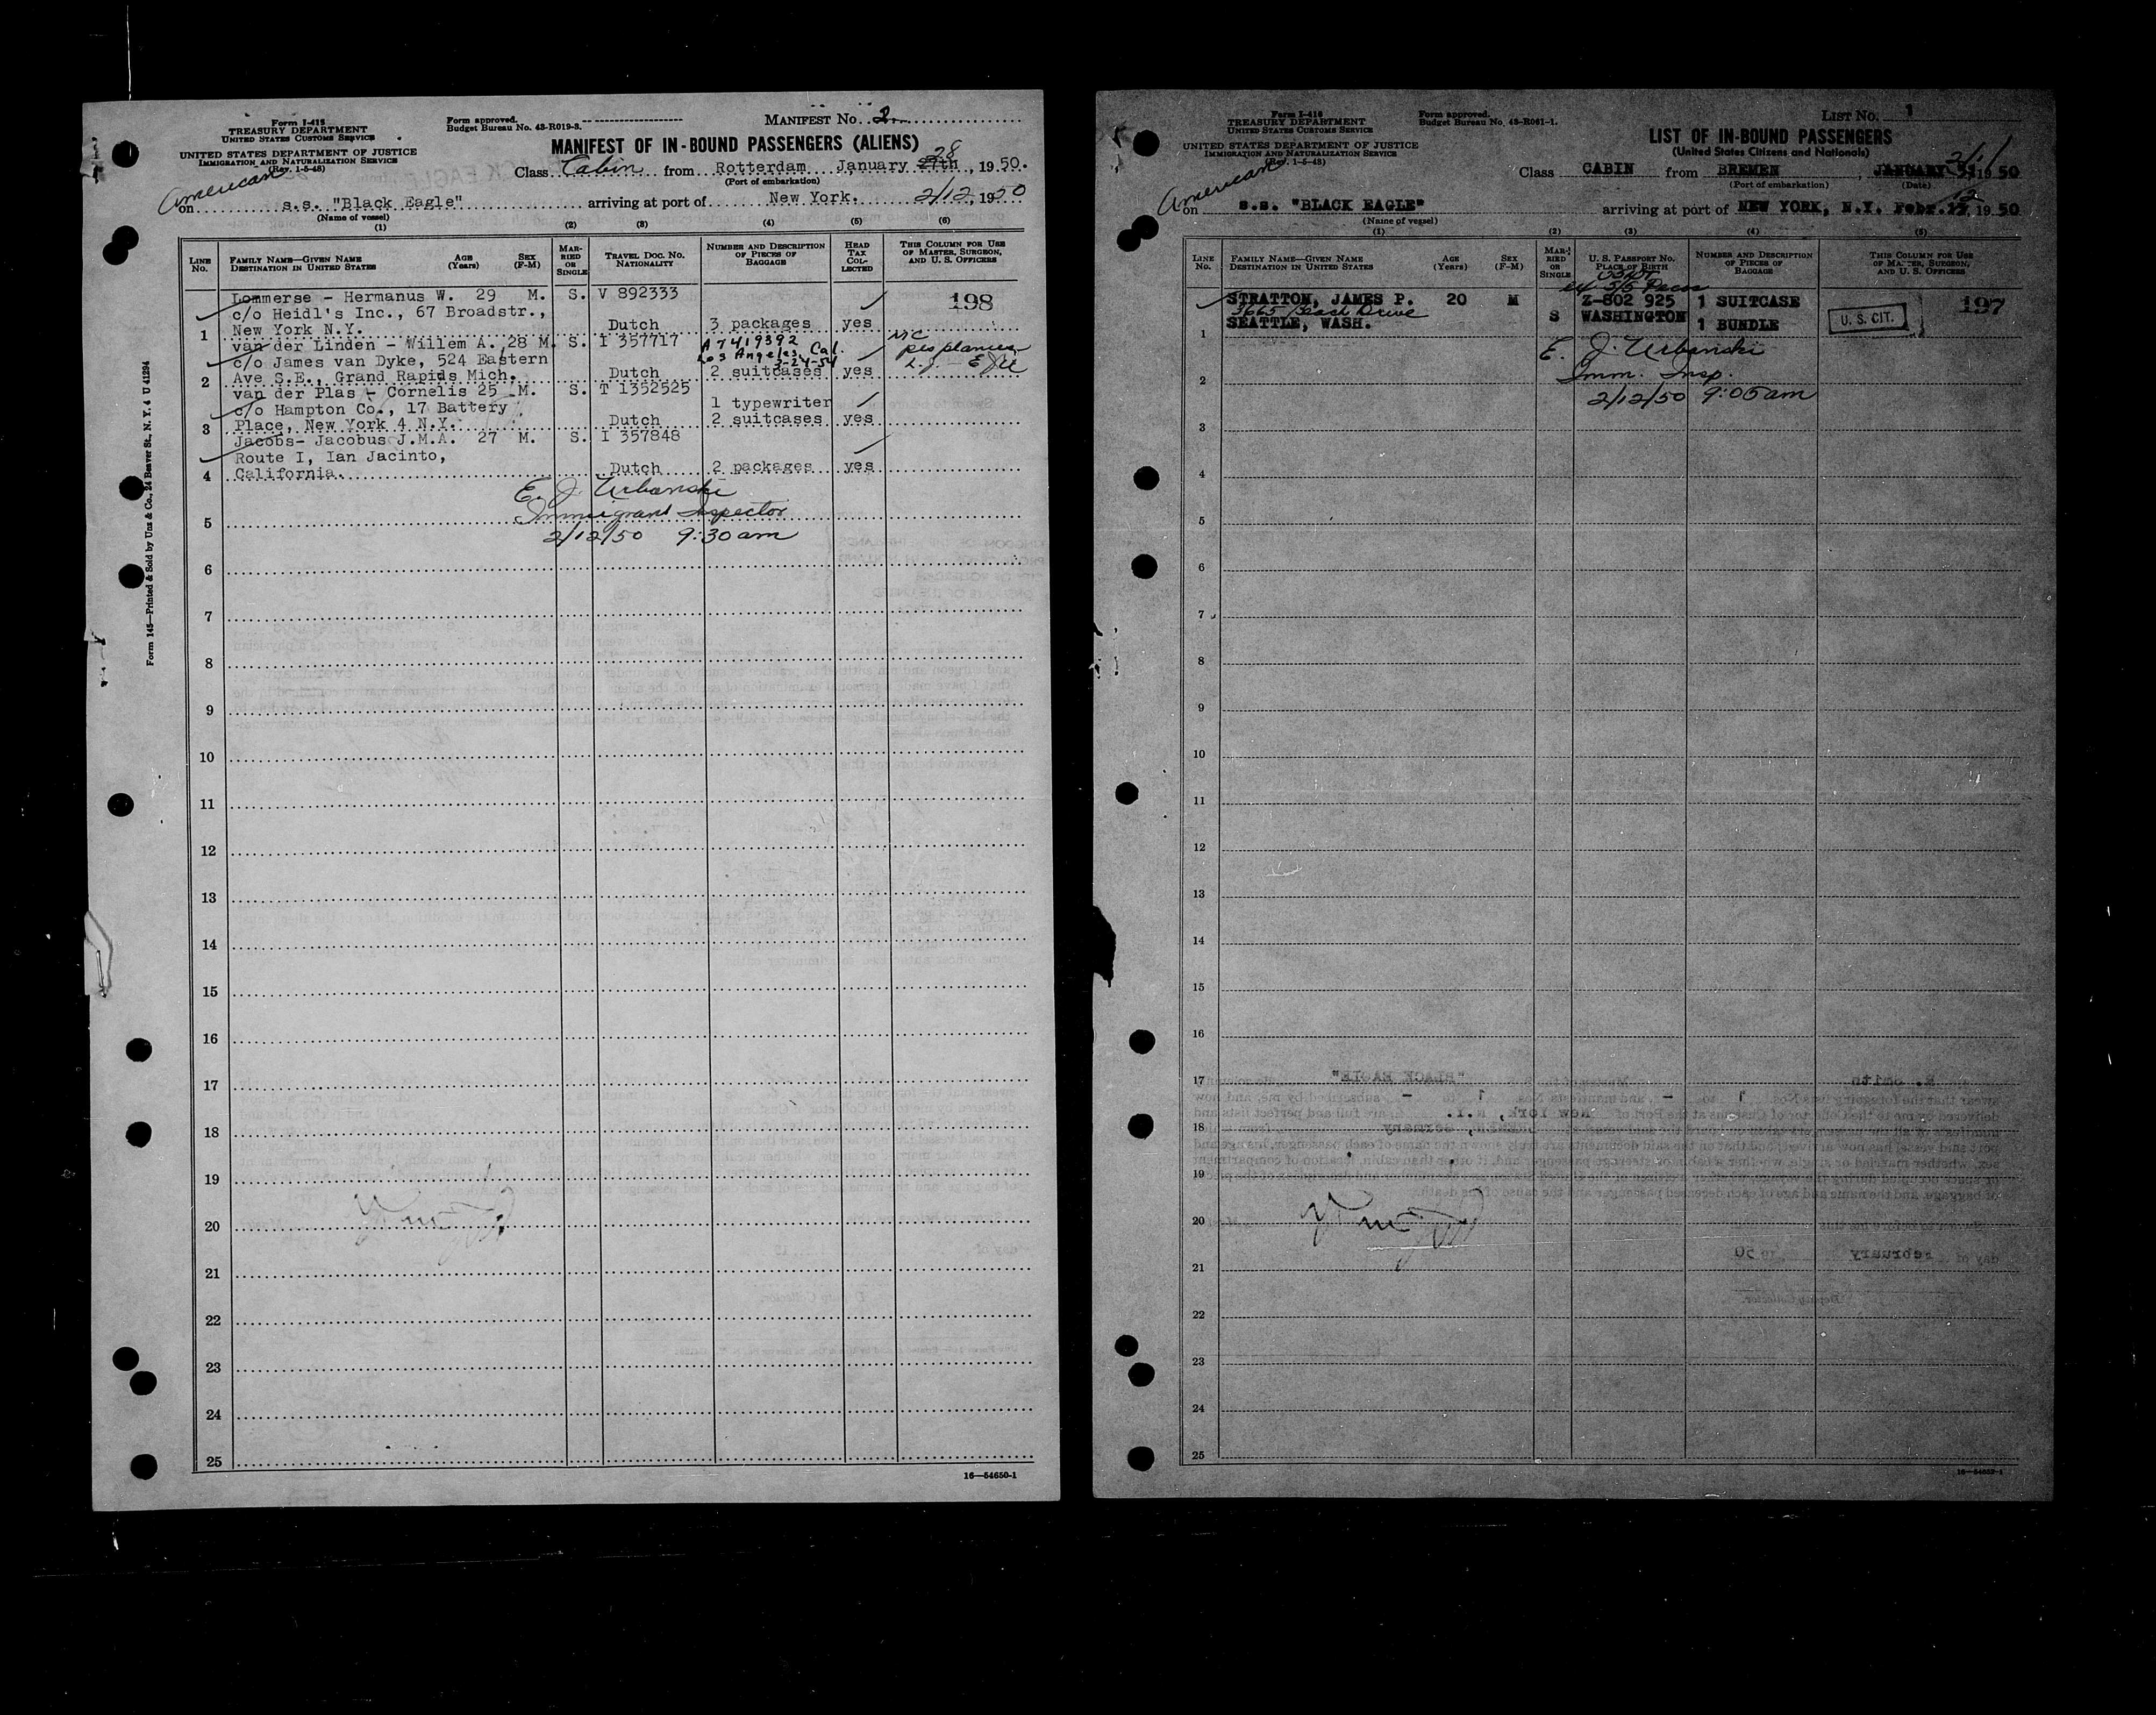 Form I-415
TREASURY DEPARTMENT
UNITED STATES CUSTOMS SERVICE
UNITED STATES DEPARTMENT OF JUSTICE
IMMIGRATION AND NATURALIZATION SERVICE
(Rev. 1-5-48)
Form approved.
Budget Bureau No. 43-R019-3.
MANIFEST No. 2
MANIFEST OF IN-BOUND PASSENGERS (ALIENS)
Class Cabin from Rotterdam January 27th 28, 1950.
(Port of embarkation)
American
on s.s. "Black Eagle" arriving at port of New York. 2/12, 1950
(Name of vessel)
(1) (2) (3) (4) (5) (6)
LINE No.
FAMILY NAME—GIVEN NAME
DESTINATION IN UNITED STATES
AGE (Years)
SEX (F-M)
MARRIED OR SINGLE
TRAVEL DOC. NO. NATIONALITY
NUMBER AND DESCRIPTION OF PIECES OF BAGGAGE
HEAD TAX COLLECTED
THIS COLUMN FOR USE OF MASTER, SURGEON, AND U. S. OFFICERS
Lommerse - Hermanus W. 29 M. S. V 892333
198
c/o Heidl's Inc., 67 Broadstr.,
1 New York N.Y. Dutch 3 packages yes
van der Linden - Willem A. 28 M. S. I 357717 A7419392
Los Angeles, Cal. 2-24-54
pes planus
c/o James van Dyke, 524 Eastern
2 Ave S.E., Grand Rapids Mich. Dutch 2 suitcases yes
van der Plas - Cornelis 25 M. S. T 1352525
c/o Hampton Co., 17 Battery 1 typewriter
3 Place, New York 4 N.Y. Dutch 2 suitcases yes
Jacobs- Jacobus J.M.A. 27 M. S. I 357848
Route I, Ian Jacinto,
4 California. Dutch 2 packages yes
E. J. Urbanski
5 Immigrant Inspector
2/12/50 9:30 am
6
7
8
9
10
11
12
13
14
15
16
17
18
19
20
21
22
23
24
25
16—54650-1
Form 145—Printed & Sold by Unz & Co., 24 Beaver St., N. Y. 4 U 41294
Form I-416
TREASURY DEPARTMENT
UNITED STATES CUSTOMS SERVICE
UNITED STATES DEPARTMENT OF JUSTICE
IMMIGRATION AND NATURALIZATION SERVICE
(Rev. 1-5-48)
Form approved.
Budget Bureau No. 43-R061-1.
LIST No. 1
LIST OF IN-BOUND PASSENGERS
(United States Citizens and Nationals)
Class CABIN from BREMEN, JANUARY 2/1, 1950
(Port of embarkation) (Date)
American
on s.s. "BLACK EAGLE" arriving at port of NEW YORK, N.Y. Febr. 12, 1950
(Name of vessel)
(1) (2) (3) (4) (5)
LINE No.
FAMILY NAME—GIVEN NAME
DESTINATION IN UNITED STATES
AGE (Years)
SEX (F-M)
MARRIED OR SINGLE
U. S. PASSPORT NO. PLACE OF BIRTH
NUMBER AND DESCRIPTION OF PIECES OF BAGGAGE
THIS COLUMN FOR USE OF MASTER, SURGEON, AND U. S. OFFICERS
STRATTON, JAMES P. 20 M Z-802 925 1 SUITCASE 197
3665 Beach Drive S WASHINGTON
1 SEATTLE, WASH. 1 BUNDLE U. S. CIT.
E. J. Urbanski
2 Imm. Insp.
2/12/50 9:05 am
3
4
5
6
7
8
9
10
11
12
13
14
15
16
17
18
19
20
21
22
23
24
25